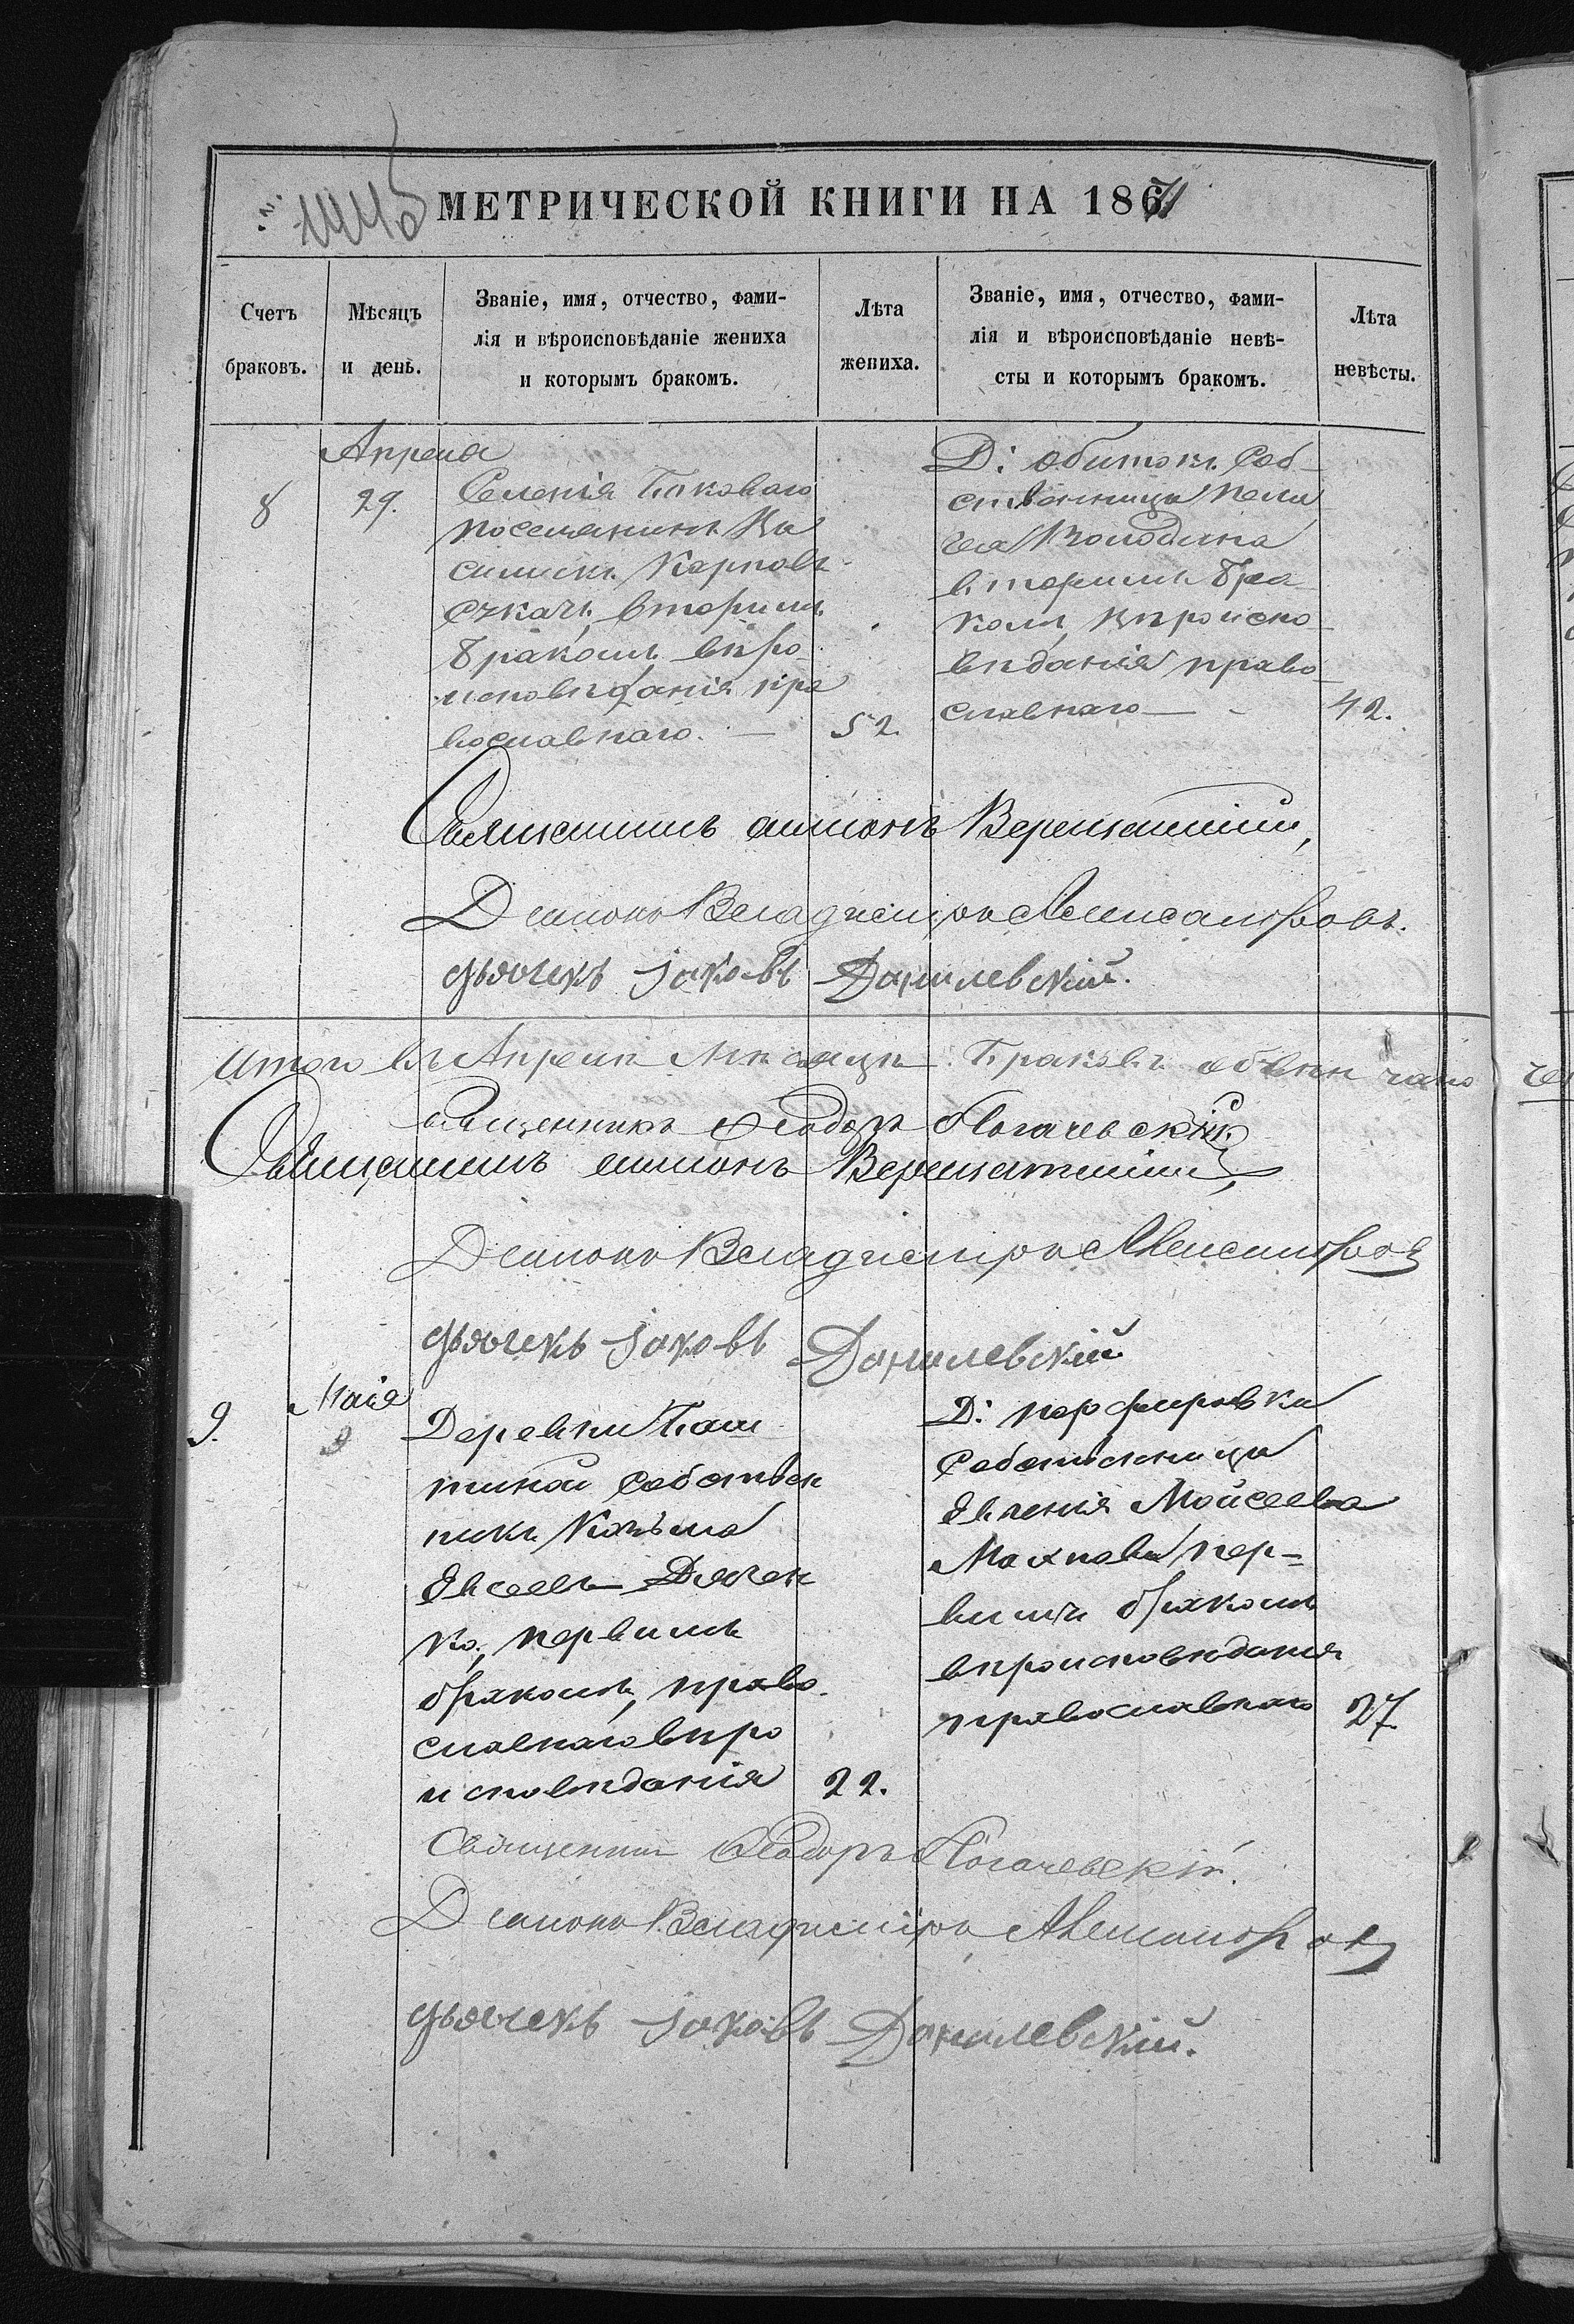 1446 МЕТРИЧЕСКОЙ КНИГИ НА 1871
Счетъ браковъ.
Мѣсяцъ и день.
Званіе, имя, отчество, фами-
лія и вѣроисповѣданіе жениха
и которымъ бракомъ.
Лѣта жениха.
Званіе, имя, отчество, фами-
лія и вѣроисповѣданіе невѣ-
сты и которымъ бракомъ.
Лѣта невѣсты.
Апреля
8
29.
Селенія Баковаго
поселянинъ Ва
силискъ Карповъ
вторимъ
бракомъ вѣро
исповѣданія пра
вославнаго.
52.
Д: обиточн. соб-
ственница Пела
гея Колодина
вторимъ бра
комъ, вѣроиспо-
вѣданія право
славнаго
42.
Священникъ Симеонъ Верещацкій,
Діаконъ Владиміръ Александровъ.
дьячекъ Іаковъ Данилевскій.
Итого въ Апрелѣ мѣсяцѣ браковъ обвѣнчано
священникъ Ѳеодоръ Погачевскій
Священникъ Симеонъ Верещацкій,
Діаконъ Владиміръ Александровъ
дьячекъ Іаковъ Данилевскій
9.
Маія
9
Деревни Баш
тиной собствен
никъ Козьма
Евсеевъ Дячен
ко, первимъ
бракомъ, право
славнаго вѣро
исповѣданія
22.
Д: Порфировки
собственница
Евгенія Мойсеева
Махнова пер-
вимъ бракомъ
вѣроисповѣданія
православнаго
27.
Священникъ Ѳеодоръ Погачевскій.
Діаконъ Владиміръ Александровъ
дьячекъ Іаковъ Данилевскій.